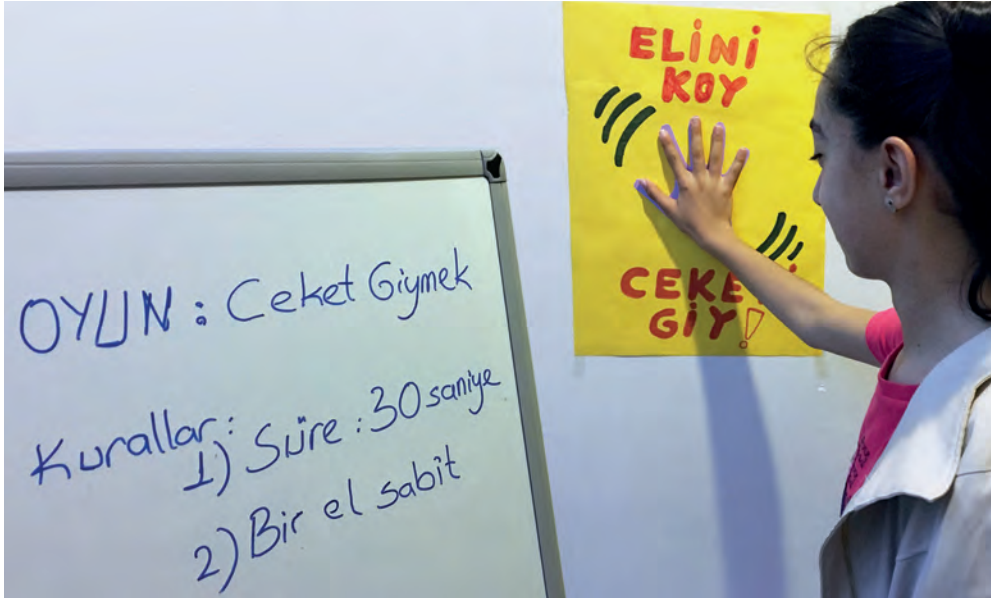 ELİNİ
KOY
CEKE
GİY!
OYUN : Ceket Giymek
Kurallar:
1) Süre : 30 saniye
2) Bir el sabit